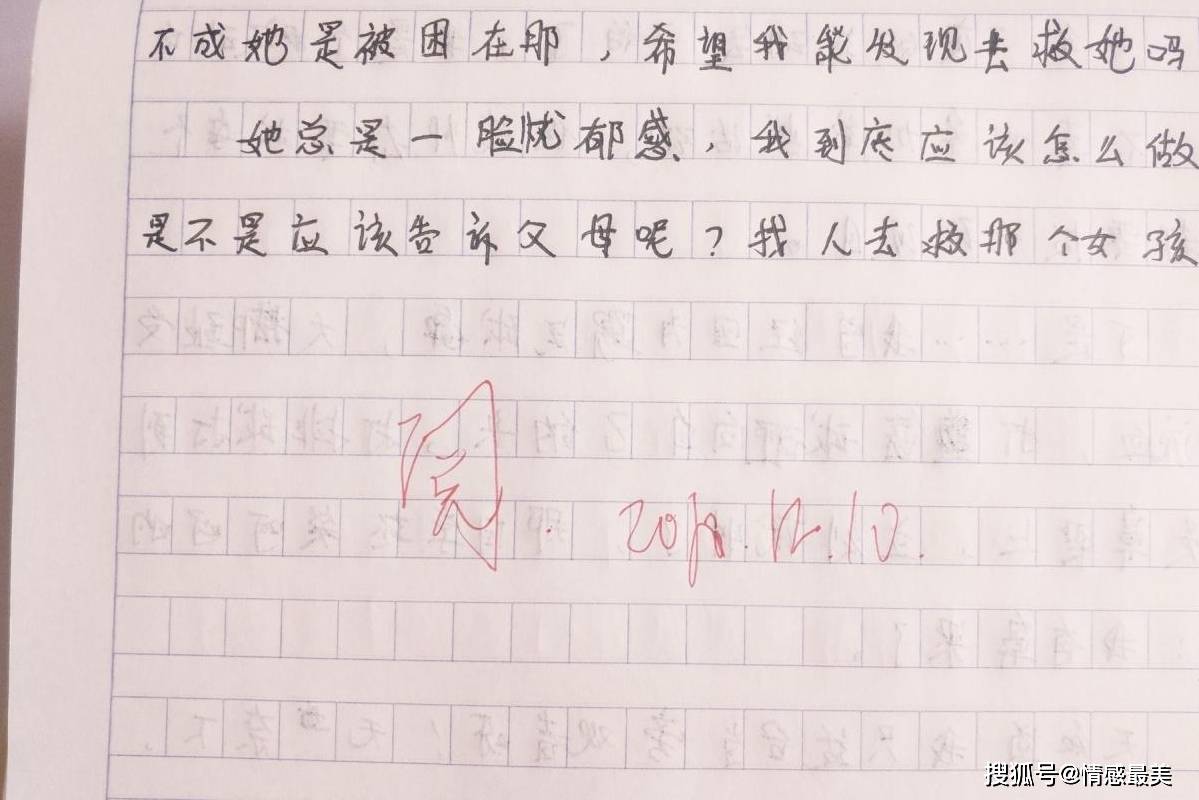 不成她是被困在那，希望我能发现去救她吗
她总是一脸忧郁感，我到底应该怎么做
是不是应该告诉父母呢？找人去救那个女孩
阅 2018.12.10.
搜狐号@情感最美